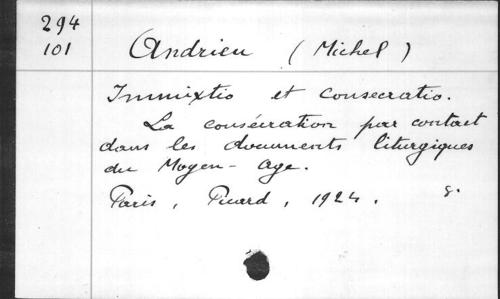 294
101
Andrieu (Michel)
Immixtio et consecratio.
La consécration par contact
dans les documents liturgiques
du Moyen-Age.
Paris, Picard, 1924. 8.